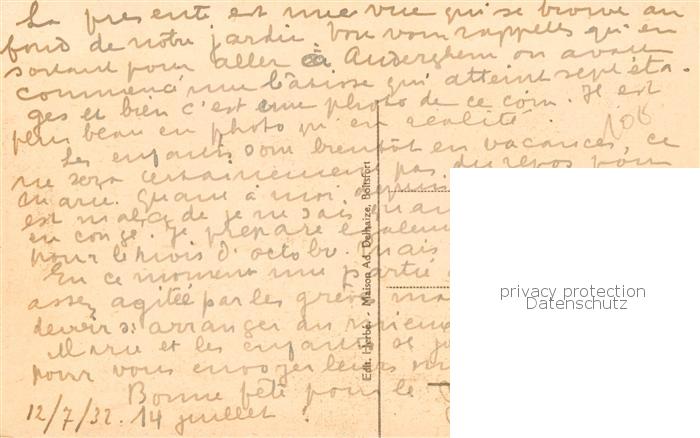 La presente est une vue qui se trouve au
fond de notre jardin vous vous rappelez qu'en
sortant pour aller à Auderghem on avait
commencé une bâtisse qui atteint sept éta-
ges et bien c'est une photo de ce coin. Il est
plus beau en photo qu'en réalité.
108
Les enfants sont bientôt en vacances, ce
ne sera certainement pas du repos pour
Marie. Quant à moi, depuis
est malade je ne sais quand
en congé. Je prepare
pour le mois d'octobr. mais
En ce moment une partie
assez agitée par les grèves
devoir s'arranger au mieux
Marie et les enfants se
pour vous envoyer leurs
Bonne fête pour le
12/7/32. 14 juillet!
Edit. Herbe. - Maison Ad. Delhaize, Boitsfort
privacy protection
Datenschutz